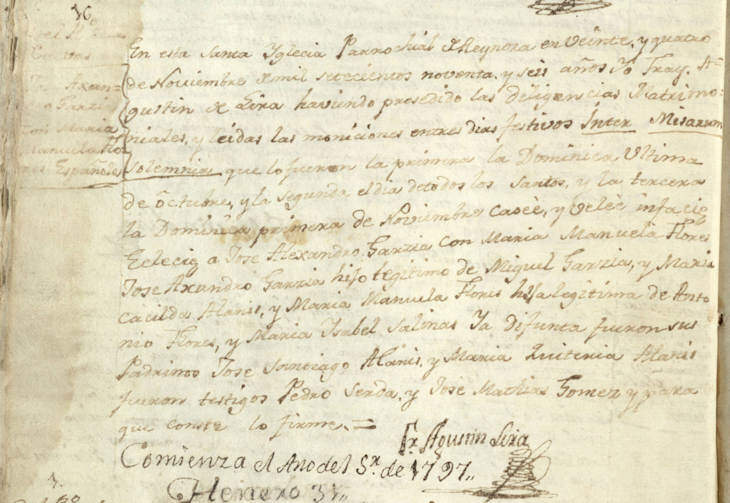 16
Cuevas
Jose Axan
dro Garzia
con Maria
Manuela Flo
res Españoles
En esta Santa Yglecia Parrochial d Reynosa en veinte, y quatro
de Noviembre de mil setecientos noventa, y seis años Yo Fray, A
gustin de Lira haviendo presedido las diligencias Matrimo-
niales, y leidas las moniciones entres dias festivos Inter Misarum
Solemnia que lo fueron la primera la Dominica Ultima
de Octubre, y la segunda el dia de todos los Santos, y la tercera
la Dominica primera de Noviembre casè, y velè infacie
Eclecie a Jose Alexandro Garzia con Maria Manuela Flores
Jose Axandro Garzia hijo legitimo de Miguel Garzia, y Maria
Cacilda Alanis, y Maria Manuela Flores hija legitima de Anto
nio Flores, y Maria Isabel Salinas Ya difunta fueron sus
Padrinos Jose Alanis, y Maria Quiteria Alanis
fueron testigos Pedro Serda, y Jose Mathias Gomez y para
que conste lo firme. =
Fr. Agustin Lira
Comienza el Año del Sr. de 1797,,
Henero 31,,